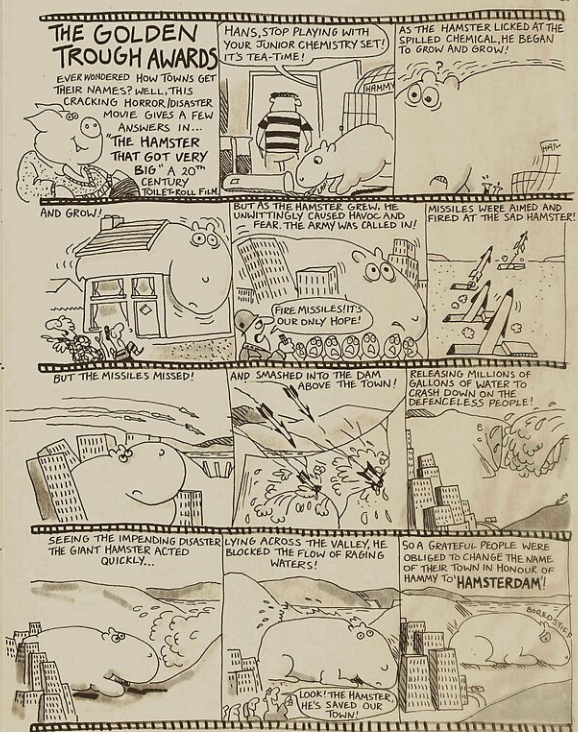 THE GOLDEN
TROUGH AWARDS
EVER WONDERED HOW TOWNS GET
THEIR NAMES? WELL, THIS
CRACKING HORROR/DISASTER
MOVIE GIVES A FEW
ANSWERS IN...
"THE HAMSTER
THAT GOT VERY
BIG" A 20TH
CENTURY
TOILET-ROLL FILM.
HANS, STOP PLAYING WITH
YOUR JUNIOR CHEMISTRY SET!
IT'S TEA-TIME!
HAMMY
AS THE HAMSTER LICKED AT THE
SPILLED CHEMICAL, HE BEGAN
TO GROW AND GROW!
?
HAM
AND GROW!
BUT AS THE HAMSTER GREW, HE
UNWITTINGLY CAUSED HAVOC AND
FEAR. THE ARMY WAS CALLED IN!
FIRE MISSILES! IT'S
OUR ONLY HOPE!
MISSILES WERE AIMED AND
FIRED AT THE SAD HAMSTER!
BUT THE MISSILES MISSED!
AND SMASHED INTO THE DAM
ABOVE THE TOWN!
RELEASING MILLIONS OF
GALLONS OF WATER TO
CRASH DOWN ON THE
DEFENCELESS PEOPLE!
SEEING THE IMPENDING DISASTER
THE GIANT HAMSTER ACTED
QUICKLY...
LYING ACROSS THE VALLEY, HE
BLOCKED THE FLOW OF RAGING
WATERS!
LOOK! THE HAMSTER,
HE'S SAVED OUR
TOWN!
SO A GRATEFUL PEOPLE WERE
OBLIGED TO CHANGE THE NAME
OF THEIR TOWN IN HONOUR OF
HAMMY TO 'HAMSTERDAM'!
BORED STIFF